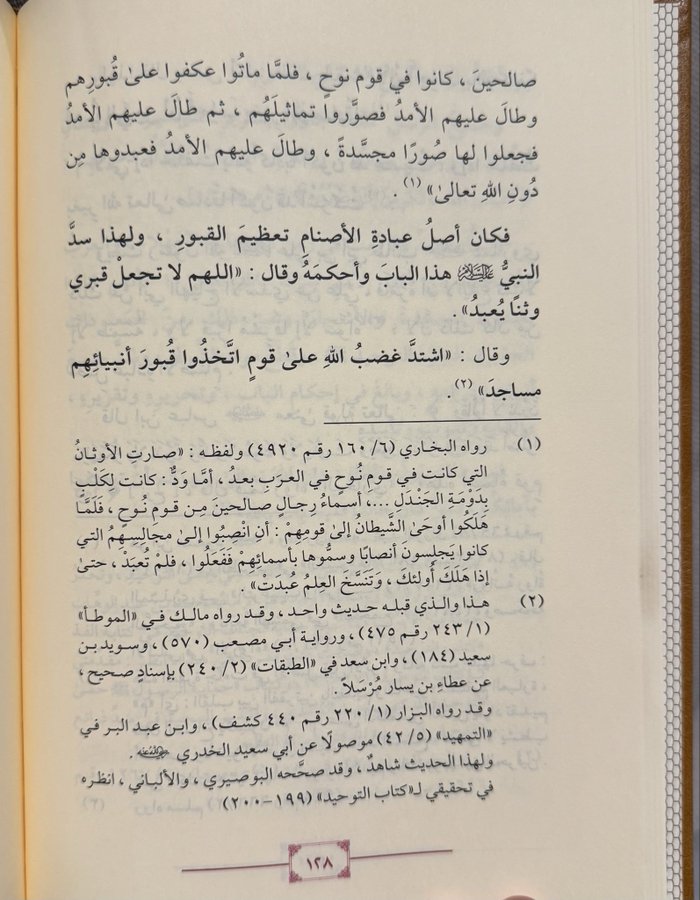 صالحينَ ، كانوا في قوم نوحٍ ، فلمَّا ماتُوا عكفوا علىٰ قُبورِهم
وطالَ عليهم الأمدُ فصوَّروا تماثيلَهُم ، ثم طالَ عليهم الأمدُ
فجعلوا لها صُورًا مجسَّدةً ، وطالَ عليهم الأمدُ فعبدوها مِن
دُونِ اللهِ تعالىٰ» (١) .
فكان أصلُ عبادةِ الأصنامِ تعظيمَ القبورِ ، ولهذا سدَّ
النبيُّ عليه السلام هذا البابَ وأحكمَهُ وقال : «اللهم لا تجعلْ قبري
وثنًا يُعبدُ» .
وقال : «اشتدَّ غضبُ اللهِ علىٰ قومٍ اتَّخذُوا قُبورَ أنبيائِهِم
مساجدَ» (٢) .
(١) رواه البخاري (٦/ ١٦٠ رقم ٤٩٢٠) ولفظه : «صارتِ الأوثانُ
التي كانت في قومِ نُوحٍ في العربِ بعدُ ، أمَّا وَدٌّ : كانت لِكَلْبٍ
بِدَوْمَةِ الجَنْدَلِ ...، أسماءُ رجالٍ صالحينَ مِن قومِ نُوحٍ ، فَلَمَّا
هَلَكُوا أوحَىٰ الشَّيطانُ إلىٰ قومِهِمْ : أنِ انْصِبُوا إلىٰ مجالِسِهِمُ التي
كانوا يَجلِسونَ أنصابًا وسمُّوها بأسمائِهِمْ فَفَعَلُوا ، فلمْ تُعبَدْ ، حتىٰ
إذا هَلَكَ أُولئكَ ، وَتَنَسَّخَ العِلمُ عُبدَتْ» .
(٢) هذا والذي قبله حديث واحد ، وقد رواه مالك في «الموطأ»
(١/ ٢٤٣ رقم ٤٧٥) ، ورواية أبي مصعب (٥٧٠) ، وسويد بن
سعيد (١٨٤) ، وابن سعد في «الطبقات» (٢/ ٢٤٠) بإسنادٍ صحيح ،
عن عطاءِ بن يسار مُرْسَلاً .
وقد رواه البزار (١/ ٢٢٠ رقم ٤٤٠ كشف) ، وابن عبد البر في
«التمهيد» (٥/ ٤٢) موصولًا عن أبي سعيد الخدري رضي الله عنه .
ولهذا الحديث شاهدٌ ، وقد صحَّحه البوصيري ، والألباني ، انظره
في تحقيقي لـ«كتاب التوحيد» (١٩٩-٢٠٠)
١٢٨